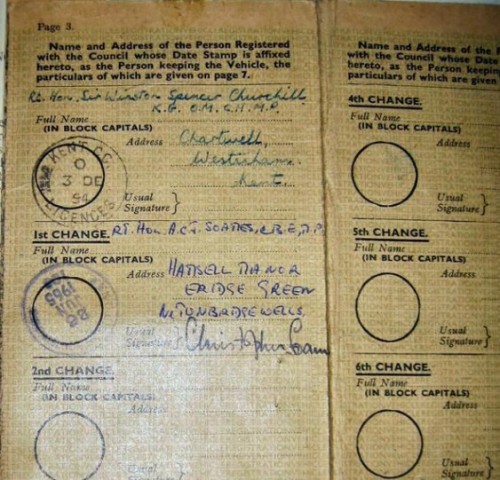 Page 3.
Name and Address of the Person Registered
with the Council whose Date Stamp is affixed
hereto, as the Person keeping the Vehicle, the
particulars of which are given on page 7.
Rt. Hon. Sir Winston Spencer Churchill
K.G. O.M. C.H. M.P.
Full Name
(IN BLOCK CAPITALS)
Address Chartwell,
Westerham.
Kent.
KENT C.C.
3 DE
54
LICENCES
Usual
Signature
1st CHANGE. RT. HON. A.C.J. SOAMES, C.B.E., M.P.
Full Name
(IN BLOCK CAPITALS)
Address HAMSELL MANOR
ERIDGE GREEN
Nr TUNBRIDGE WELLS
1965
Usual
Signature
Christopher Soames
2nd CHANGE.
Full Name
(IN BLOCK CAPITALS)
Address
Usual
Signature
Name and Address of the
with the Council whose
hereto, as the Person keeping
particulars of which are given
4th CHANGE.
Full Name
(IN BLOCK CAPITALS)
Address
Usual
Signature
5th CHANGE.
Full Name
(IN BLOCK CAPITALS)
Address
Usual
Signature
6th CHANGE.
Full Name
(IN BLOCK CAPITALS)
Address
Usual
Signature